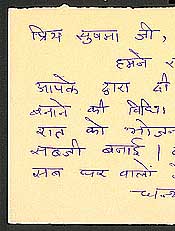 प्रिय सुषमा जी,
हमने
आपके द्वारा दी
बनाने की विधि।
रात को भोजन
सब्जी बनाई।
सब घर वालों